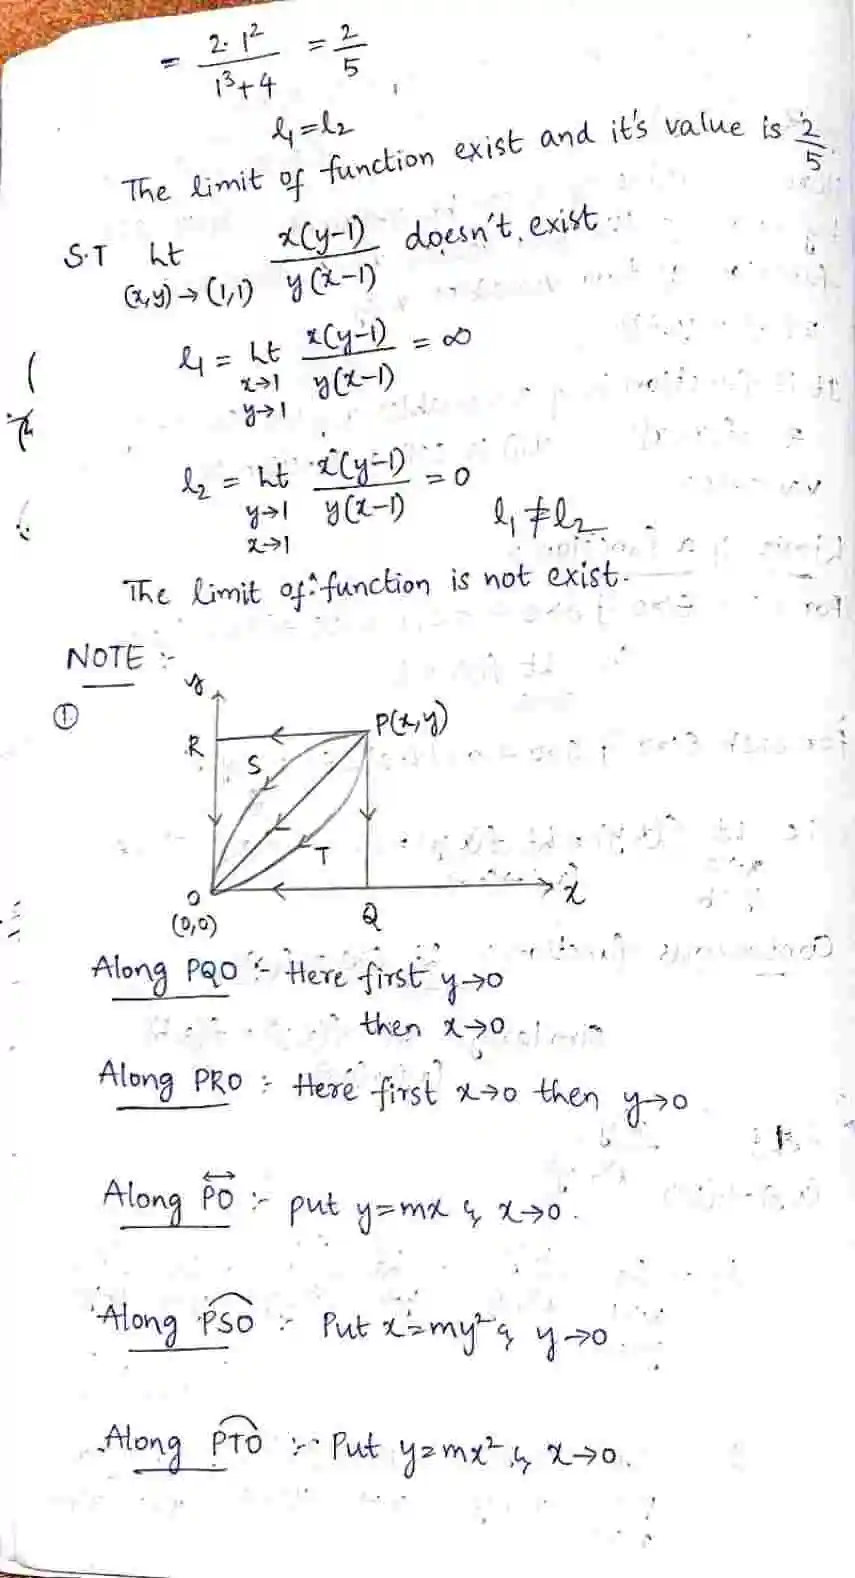 = 2·1² / 1³+4 = 2/5
l₁ = l₂
The limit of function exist and it's value is 2/5.
S.T Lt (x,y)→(1,1) x(y-1) / y(x-1) doesn't exist.
l₁ = Lt x→1 y→1 x(y-1) / y(x-1) = ∞
l₂ = Lt y→1 x→1 x(y-1) / y(x-1) = 0 l₁ ≠ l₂
The limit of function is not exist.
NOTE :-
①
y
R
P(x,y)
S
T
O
(0,0)
Q
x
Along PQO :- Here first y→0
then x→0
Along PRO :- Here first x→0 then y→0
Along PO :- put y=mx & x→0.
Along PSO :- Put x=my² & y→0.
Along PTO :- Put y=mx² & x→0.